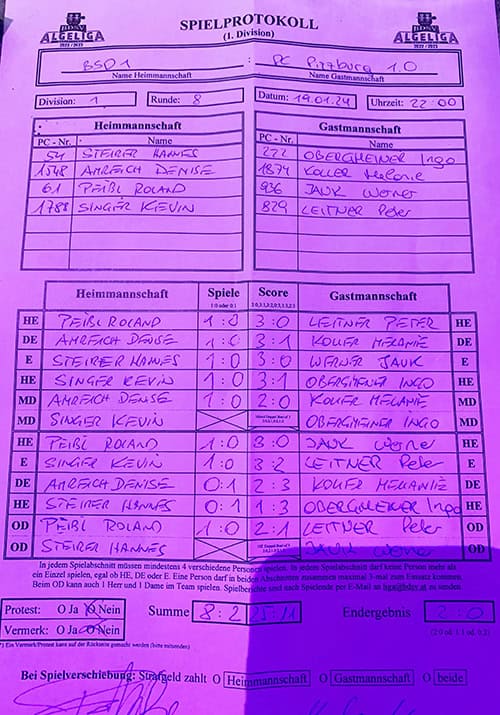 HDSV
ALGELIGA
2022 / 2023
SPIELPROTOKOLL
(1. Division)
HDSV
ALGELIGA
2022 / 2023
BSD 1 : PC Pitzburg 1.0
Name Heimmannschaft Name Gastmannschaft
Division: 1 Runde: 8 Datum: 19.01.24 Uhrzeit: 22:00
Heimmannschaft Gastmannschaft
PC - Nr. Name PC - Nr. Name
54 STEIRER HANNES 272 OBERGMEINER Ingo
1548 AHREICH DENISE 1874 KOLLER Melanie
61 PEIßL ROLAND 936 JAUK Werner
1788 SINGER KEVIN 829 LEITNER Peter
Heimmannschaft Spiele Score Gastmannschaft
1:0 oder 0:1
HE PEIßL ROLAND 1:0 3:0 LEITNER PETER HE
DE AHREICH DENISE 1:0 3:1 KOLLER MELANIE DE
E STEIRER HANNES 1:0 3:0 WERNER JAUK E
HE SINGER KEVIN 1:0 3:1 OBERGMEINER INGO HE
MD AHREICH DENISE 1:0 2:0 KOLLER MELANIE MD
MD SINGER KEVIN OBERGMEINER INGO MD
HE PEIßL ROLAND 1:0 3:0 JAUK Werner HE
E SINGER KEVIN 1:0 3:2 LEITNER Peter E
DE AHREICH DENISE 0:1 2:3 KOLLER MELANIE DE
HE STEIRER HANNES 0:1 1:3 OBERGMEINER Ingo HE
OD PEIßL ROLAND 1:0 2:1 LEITNER Peter OD
OD STEIRER HANNES JAUK Werner OD
In jedem Spielabschnitt müssen mindestens 4 verschiedene Personen spielen. In jedem Spielabschnitt darf keine Person mehr als
ein Einzel spielen, egal ob HE, DE oder E. Eine Person darf in beiden Abschnitten zusammen maximal 3-mal zum Einsatz kommen.
Beim OD kann auch 1 Herr und 1 Dame im Team spielen. Spielberichte sind nach Spielende per E-Mail an liga@hdsv.at zu senden.
Protest: O Ja O Nein Summe 8:2 25:11 Endergebnis 2:0
Vermerk: O Ja O Nein (2:0 od. 1:1 od. 0:2)
*) Ein Vermerk/Protest kann auf der Rückseite gemacht werden (bitte mitsenden)
Bei Spielverschiebung: Strafgeld zahlt O Heimmannschaft O Gastmannschaft O beide